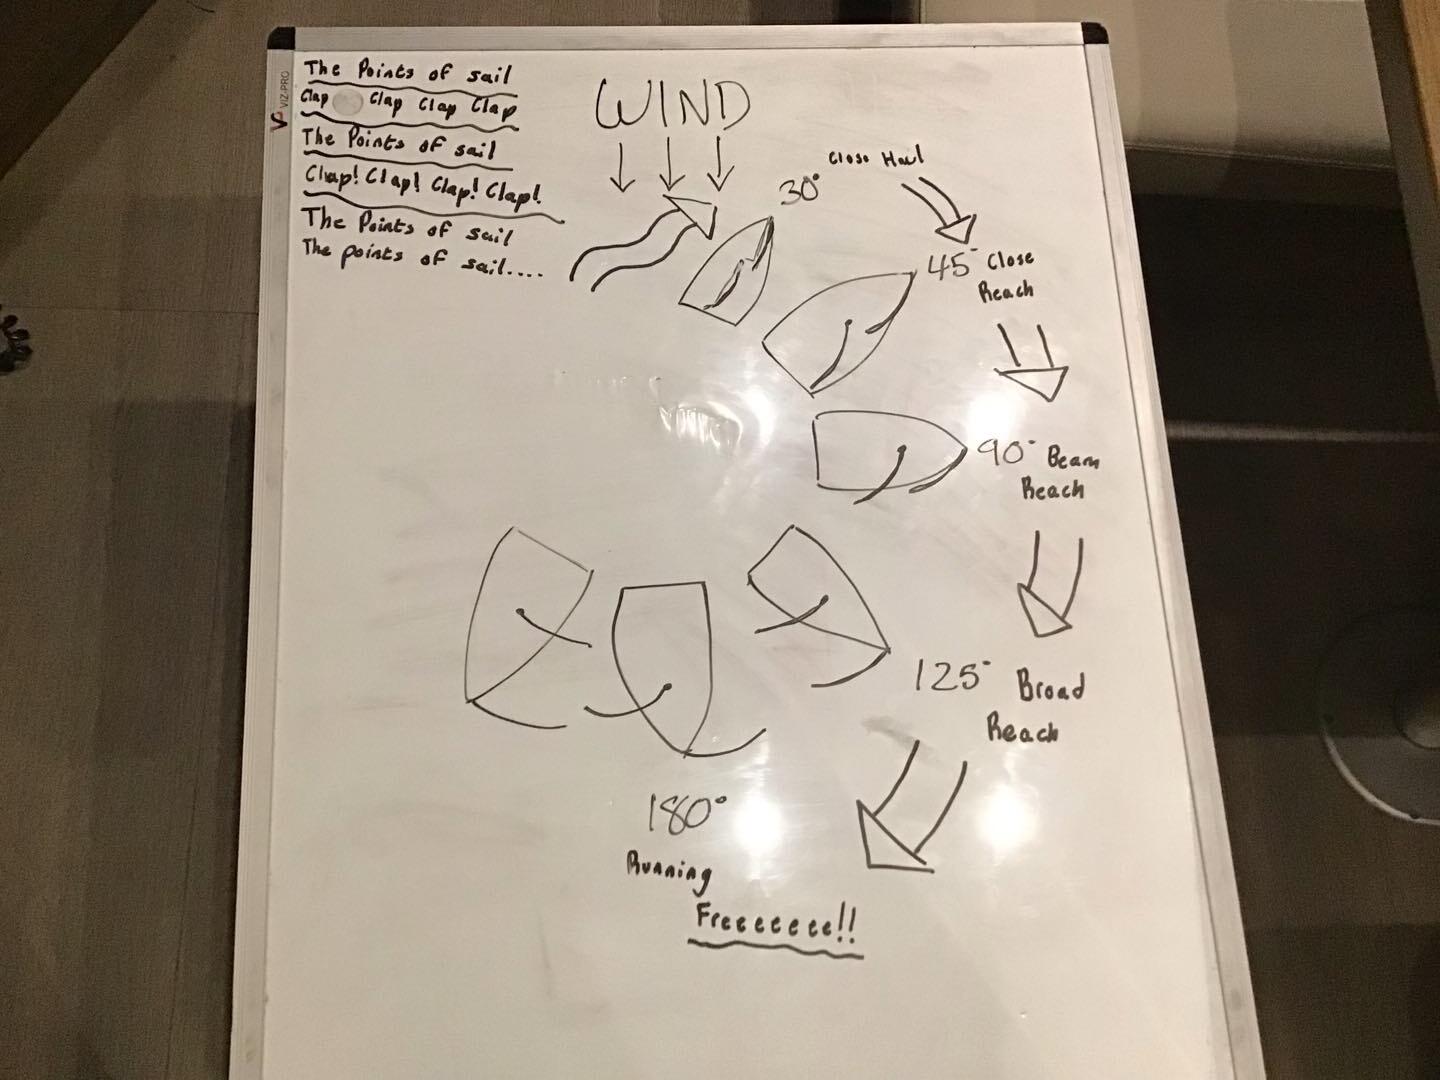 The Points of sail
Clap Clap Clap Clap
The Points of sail
Clap! Clap! Clap! Clap!
The Points of sail
The points of sail....
VIZ-PRO
WIND
30° Close Haul
45° Close
Reach
90° Beam
Reach
125° Broad
Reach
180°
Running
Freeeeeee!!